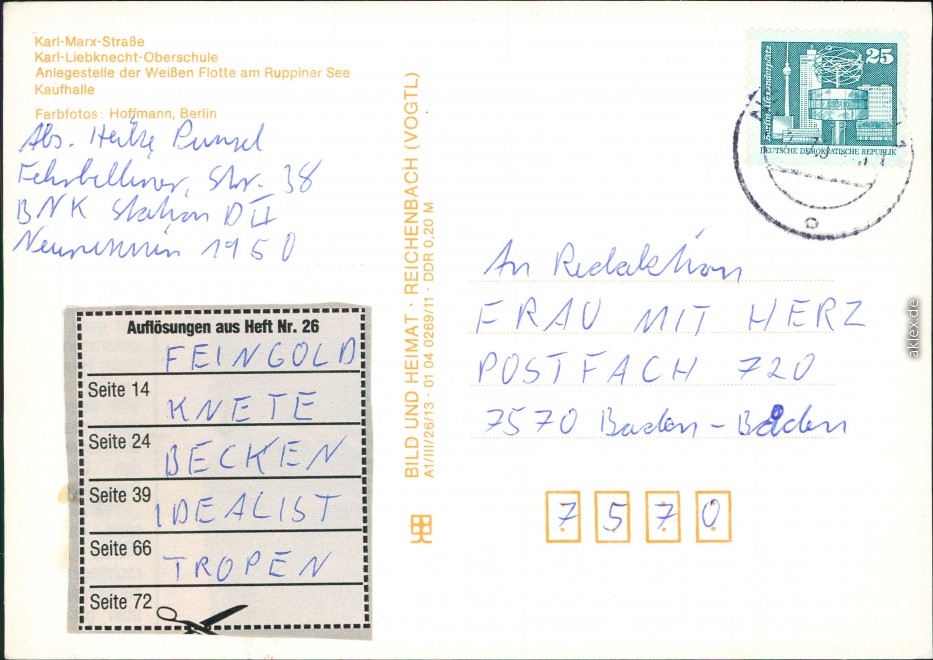 Karl-Marx-Straße
Karl-Liebknecht-Oberschule
Anlegestelle der Weißen Flotte am Ruppiner See
Kaufhalle
Farbfotos: Hoffmann, Berlin
Abs. Heike
Fehrbelliner. Str. 38
BNK Station D II
Neuruppin 1950
Auflösungen aus Heft Nr. 26
FEINGOLD
Seite 14
KNETE
Seite 24
BECKEN
Seite 39
IDEALIST
Seite 66
TROPEN
Seite 72
BILD UND HEIMAT · REICHENBACH (VOGTL)
A1/III/26/13 · 01 04 0269/11 · DDR 0,20 M
Berlin, Alexanderplatz
25
DEUTSCHE DEMOKRATISCHE REPUBLIK
An Redaktion
FRAU MIT HERZ
POSTFACH 720
7570 Baden-Baden
7 5 7 0
aklex.de